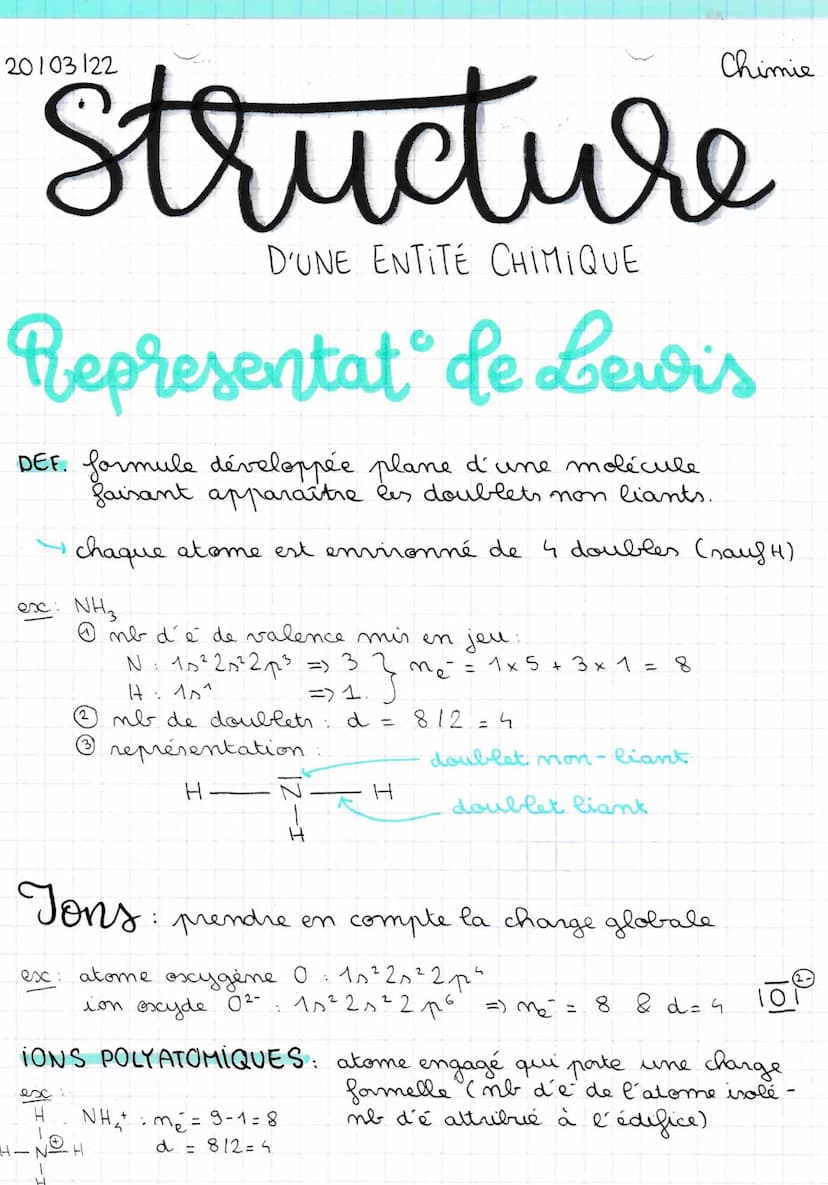 20/03/22
Chimie
Structure
D'UNE ENTITÉ CHIMIQUE
Représentat° de Lewis
DEF. formule développée plane d'une molécule
faisant apparaître les doublets non liants.
→ chaque atome est environné de 4 doubles (sauf H)
ex: NH₃
① nb d'e⁻ de valence mis en jeu:
N : 1s² 2s² 2p³ => 3 } nₑ⁻ = 1 x 5 + 3 x 1 = 8
H : 1s¹ => 1.
② nb de doublets : d = 8/2 = 4
③ représentation :
doublet non-liant
H — N — H
doublet liant
H
Ions : prendre en compte la charge globale
ex: atome oxygène O : 1s² 2s² 2p⁴
ion oxyde O²⁻ : 1s² 2s² 2p⁶ => nₑ⁻ = 8 & d= 4 |O| 2-
IONS POLYATOMIQUES : atome engagé qui porte une charge
formelle (nb d'e⁻ de l'atome isolé -
nb d'e⁻ attribué à l'édifice)
ex :
H
NH₄⁺ : nₑ⁻ = 9-1 = 8
H — N⊕ — H
d = 8/2 = 4
H